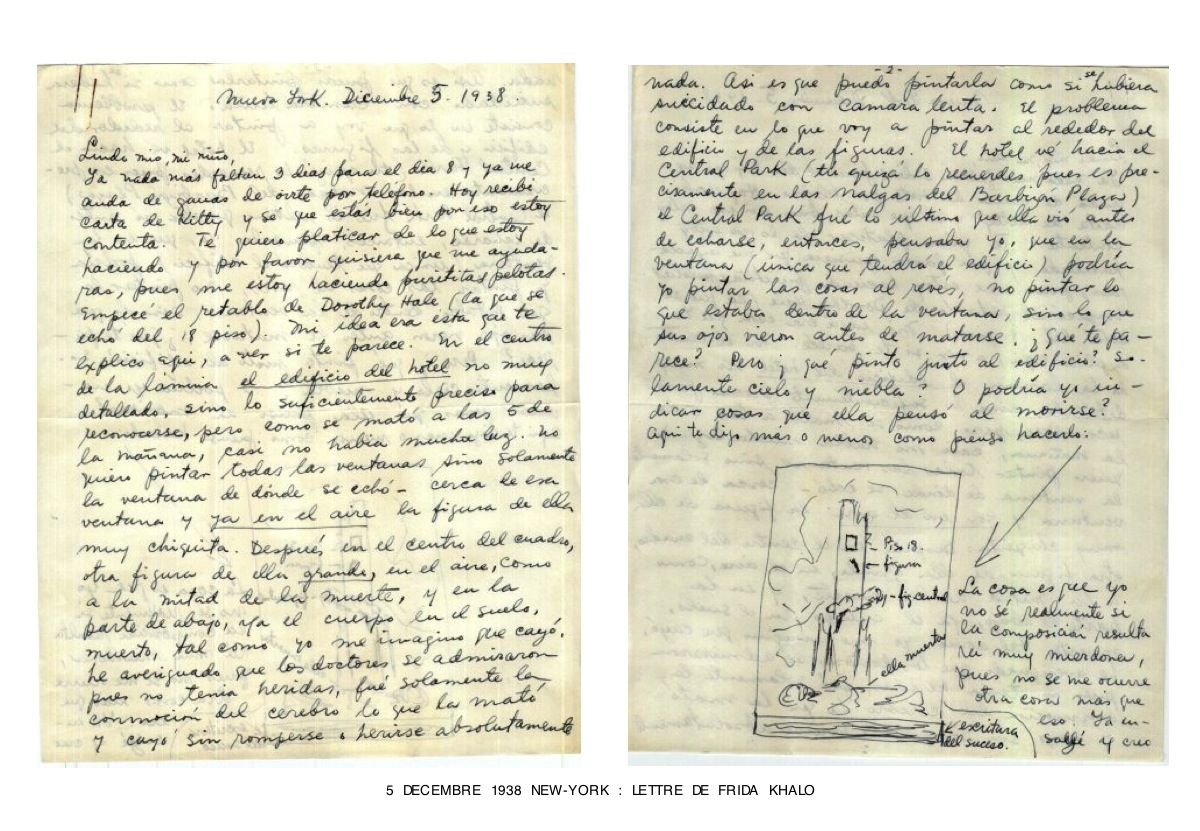 Nueva York. Diciembre 5. 1938.
Lindo mio, mi niño,
Ya nada más faltan 3 dias para el dia 8 y ya me
anda de ganas de oirte por teléfono. Hoy recibí
carta de Kitty y sé que estás bien por eso estoy
contenta. Te quiero platicar de lo que estoy
haciendo y por favor quisiera que me ayuda-
ras, pues me estoy haciendo purititas pelotas.
Empecé el retablo de Dorothy Hale (la que se
echó del 18 piso). Mi idea era esta que te
explico aqui, a ver si te parece. En el centro
de la lámina el edificio del hotel no muy
detallado, sino lo suficientemente preciso para
reconocerse, pero como se mató a las 5 de
la mañana, casi no habia mucha luz. no
quiero pintar todas las ventanas sino solamente
la ventana de dónde se echó - cerca de esa
ventana y ya en el aire la figura de ella
muy chiquita. Después en el centro del cuadro,
otra figura de ella grande, en el aire, como
a la mitad de la muerte, y en la
parte de abajo, ya el cuerpo en el suelo,
muerto, tal como yo me imagino que cayó.
he averiguado que los doctores se admiraron
pues no tenia heridas, fué solamente la
conmoción del cerebro lo que la mató
y cayó sin romperse o herirse absolutamente
-2-
nada. Asi es que puedo pintarla como si se hubiera
suicidado con cámara lenta. El problema
consiste en lo que voy a pintar al rededor del
edificio y de las figuras. El hotel vé hacia el
Central Park (tu quizá lo recuerdes pues es pre-
cisamente en las nalgas del Barbizon Plaza)
el Central Park fué lo ultimo que ella vió antes
de echarse, entonces, pensaba yo, que en la
ventana (única que tendrá el edificio) podría
yo pintar las cosas al revés, no pintar lo
que estaba dentro de la ventana, sino lo que
sus ojos vieron antes de matarse. ¿Que te pa-
rece? Pero ¿qué pinto junto al edificio? So-
lamente cielo y niebla? O podría yo in-
dicar cosas que ella pensó al morirse?
Aqui te digo más o menos como pienso hacerlo:
Piso 18.
figura
fig central
ella muerta
escritura
del suceso.
La cosa es que yo
no sé realmente si
la composición resulta
rei muy mierdona,
pues no se me ocurre
otra cosa más que
eso. Ya en-
salyé y creo
5 DECEMBRE 1938 NEW-YORK : LETTRE DE FRIDA KHALO